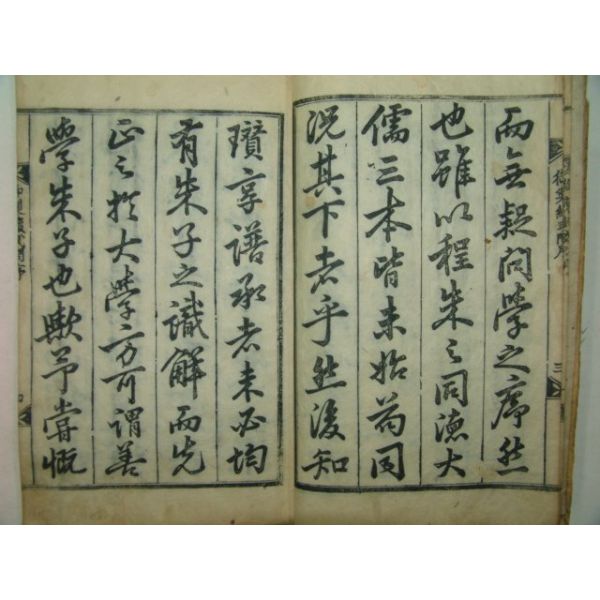 而無疑問學之序然
也雖以程朱之同德大
儒三本皆未始苟同
況其下者乎然後知
瓚享譜承者未必均
有朱子之識解而先
正之於大學方可謂善
學朱子也歟予嘗慨
三
四